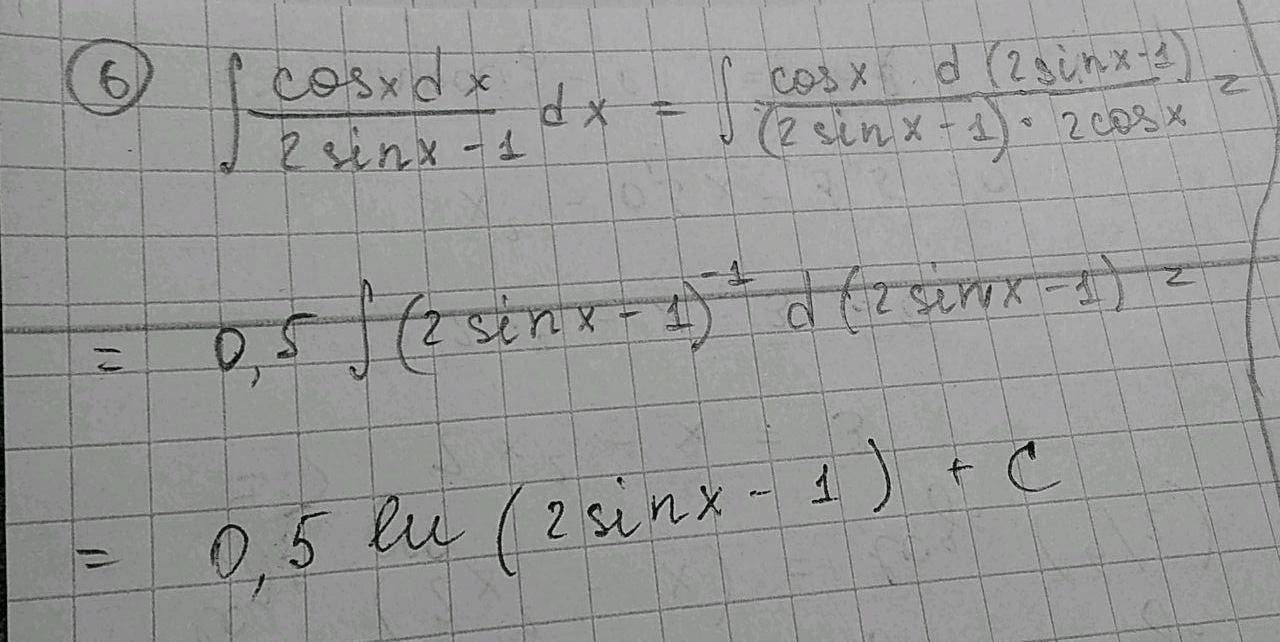 ⑥ ∫ (cosx dx)/(2 sinx - 1) dx = ∫ (cosx d(2sinx-1))/((2sinx-1)·2cosx) =
= 0,5 ∫ (2sinx-1)⁻¹ d(2sinx-1) =
= 0,5 ln (2sinx - 1) + C